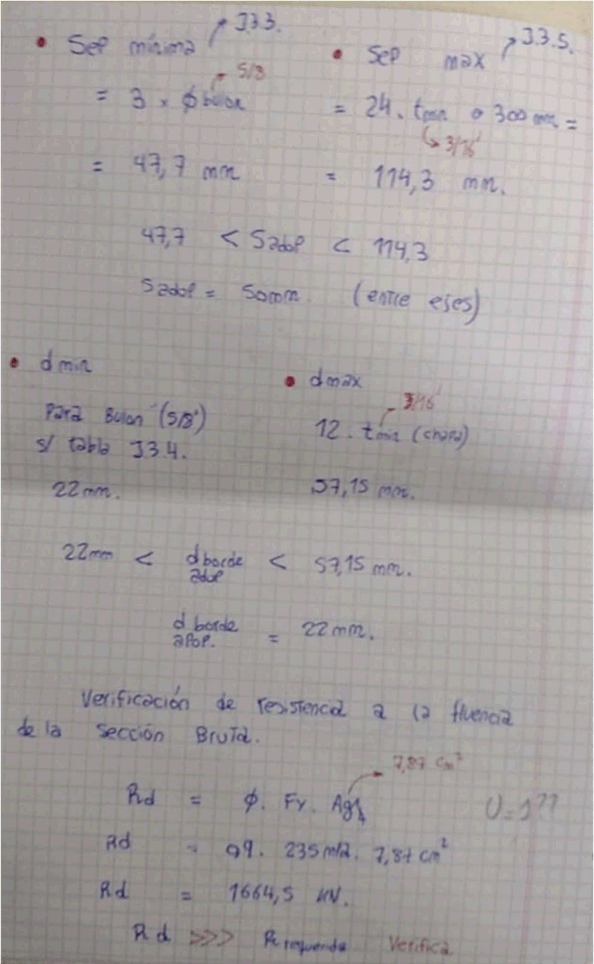 • Sep mínima J.3.3.
= 3 x ϕ bulon 5/8
= 47,7 mm
• Sep max J.3.5.
= 24. tmin o 300 mm =
3/16"
= 114,3 mm.
47,7 < Sadop < 114,3
Sadop = 50mm. (entre ejes)
• d min
Para Bulon (5/8")
s/ tabla J.3.4.
22 mm.
• d max
3/16"
12. tmin (chapa)
57,15 mm.
22mm < d borde adop < 57,15 mm.
d borde adop. = 22 mm.
Verificación de resistencia a la fluencia
de la sección Bruta.
7,87 cm²
Rd = ϕ. Fy. Ag U=1??
Rd = 0,9. 235 mPa. 7,87 cm²
Rd = 1664,5 kN.
Rd >>> R requerida Verifica